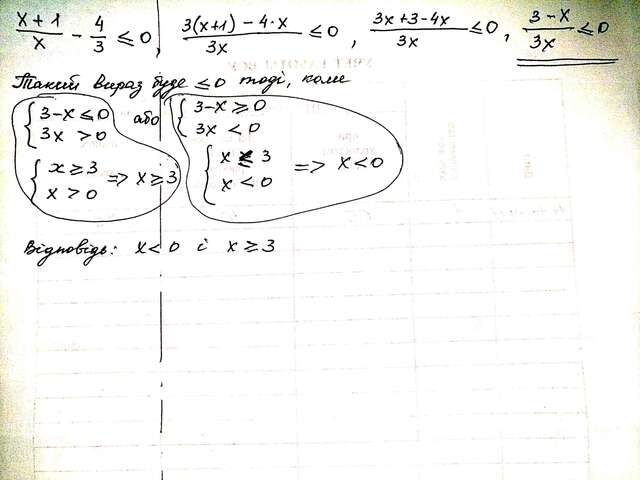 x+1/x - 4/3 ≤ 0, 3(x+1) - 4·x/3x ≤ 0, 3x+3-4x/3x ≤ 0, 3-x/3x ≤ 0
Такий вираз буде ≤ 0 тоді, коли
{3-x ≤ 0 або {3-x ≥ 0
3x > 0 3x < 0
{x ≥ 3 => x ≥ 3 {x ≤ 3 => x < 0
x > 0 x < 0
Відповідь: x < 0 і x ≥ 3